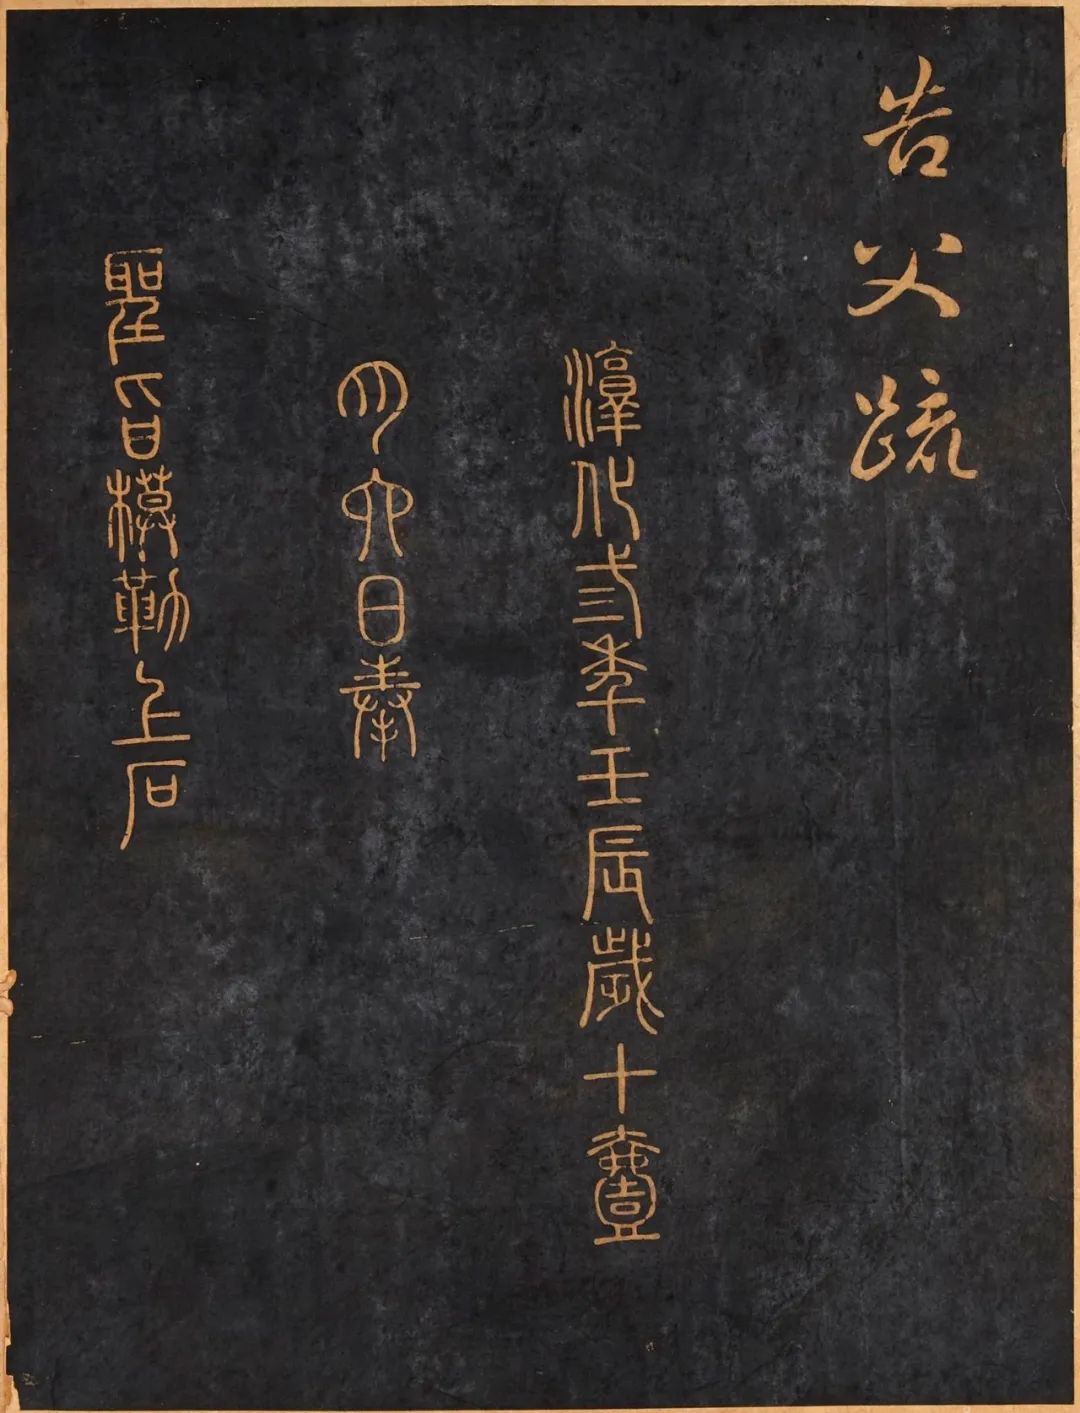 告父疏
淳化弎秊壬辰歲十壹
月六日奉
聖旨模勒上石